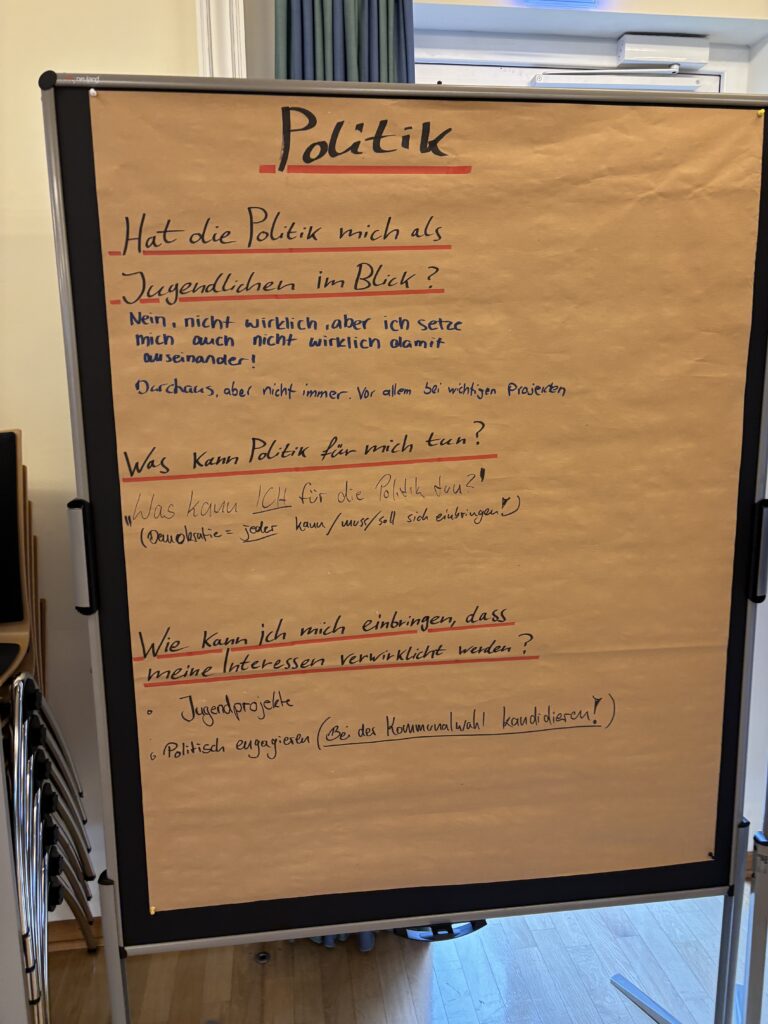 Politik
Hat die Politik mich als
Jugendlichen im Blick?
Nein, nicht wirklich, aber ich setze
mich auch nicht wirklich damit
auseinander!
Durchaus, aber nicht immer. Vor allem bei wichtigen Projekten
Was kann Politik für mich tun?
„Was kann ICH für die Politik tun?"
(Demokratie = jeder kann/muss/soll sich einbringen!)
Wie kann ich mich einbringen, dass
meine Interessen verwirklicht werden?
• Jugendprojekte
• Politisch engagieren (Bei der Kommunalwahl kandidieren!)